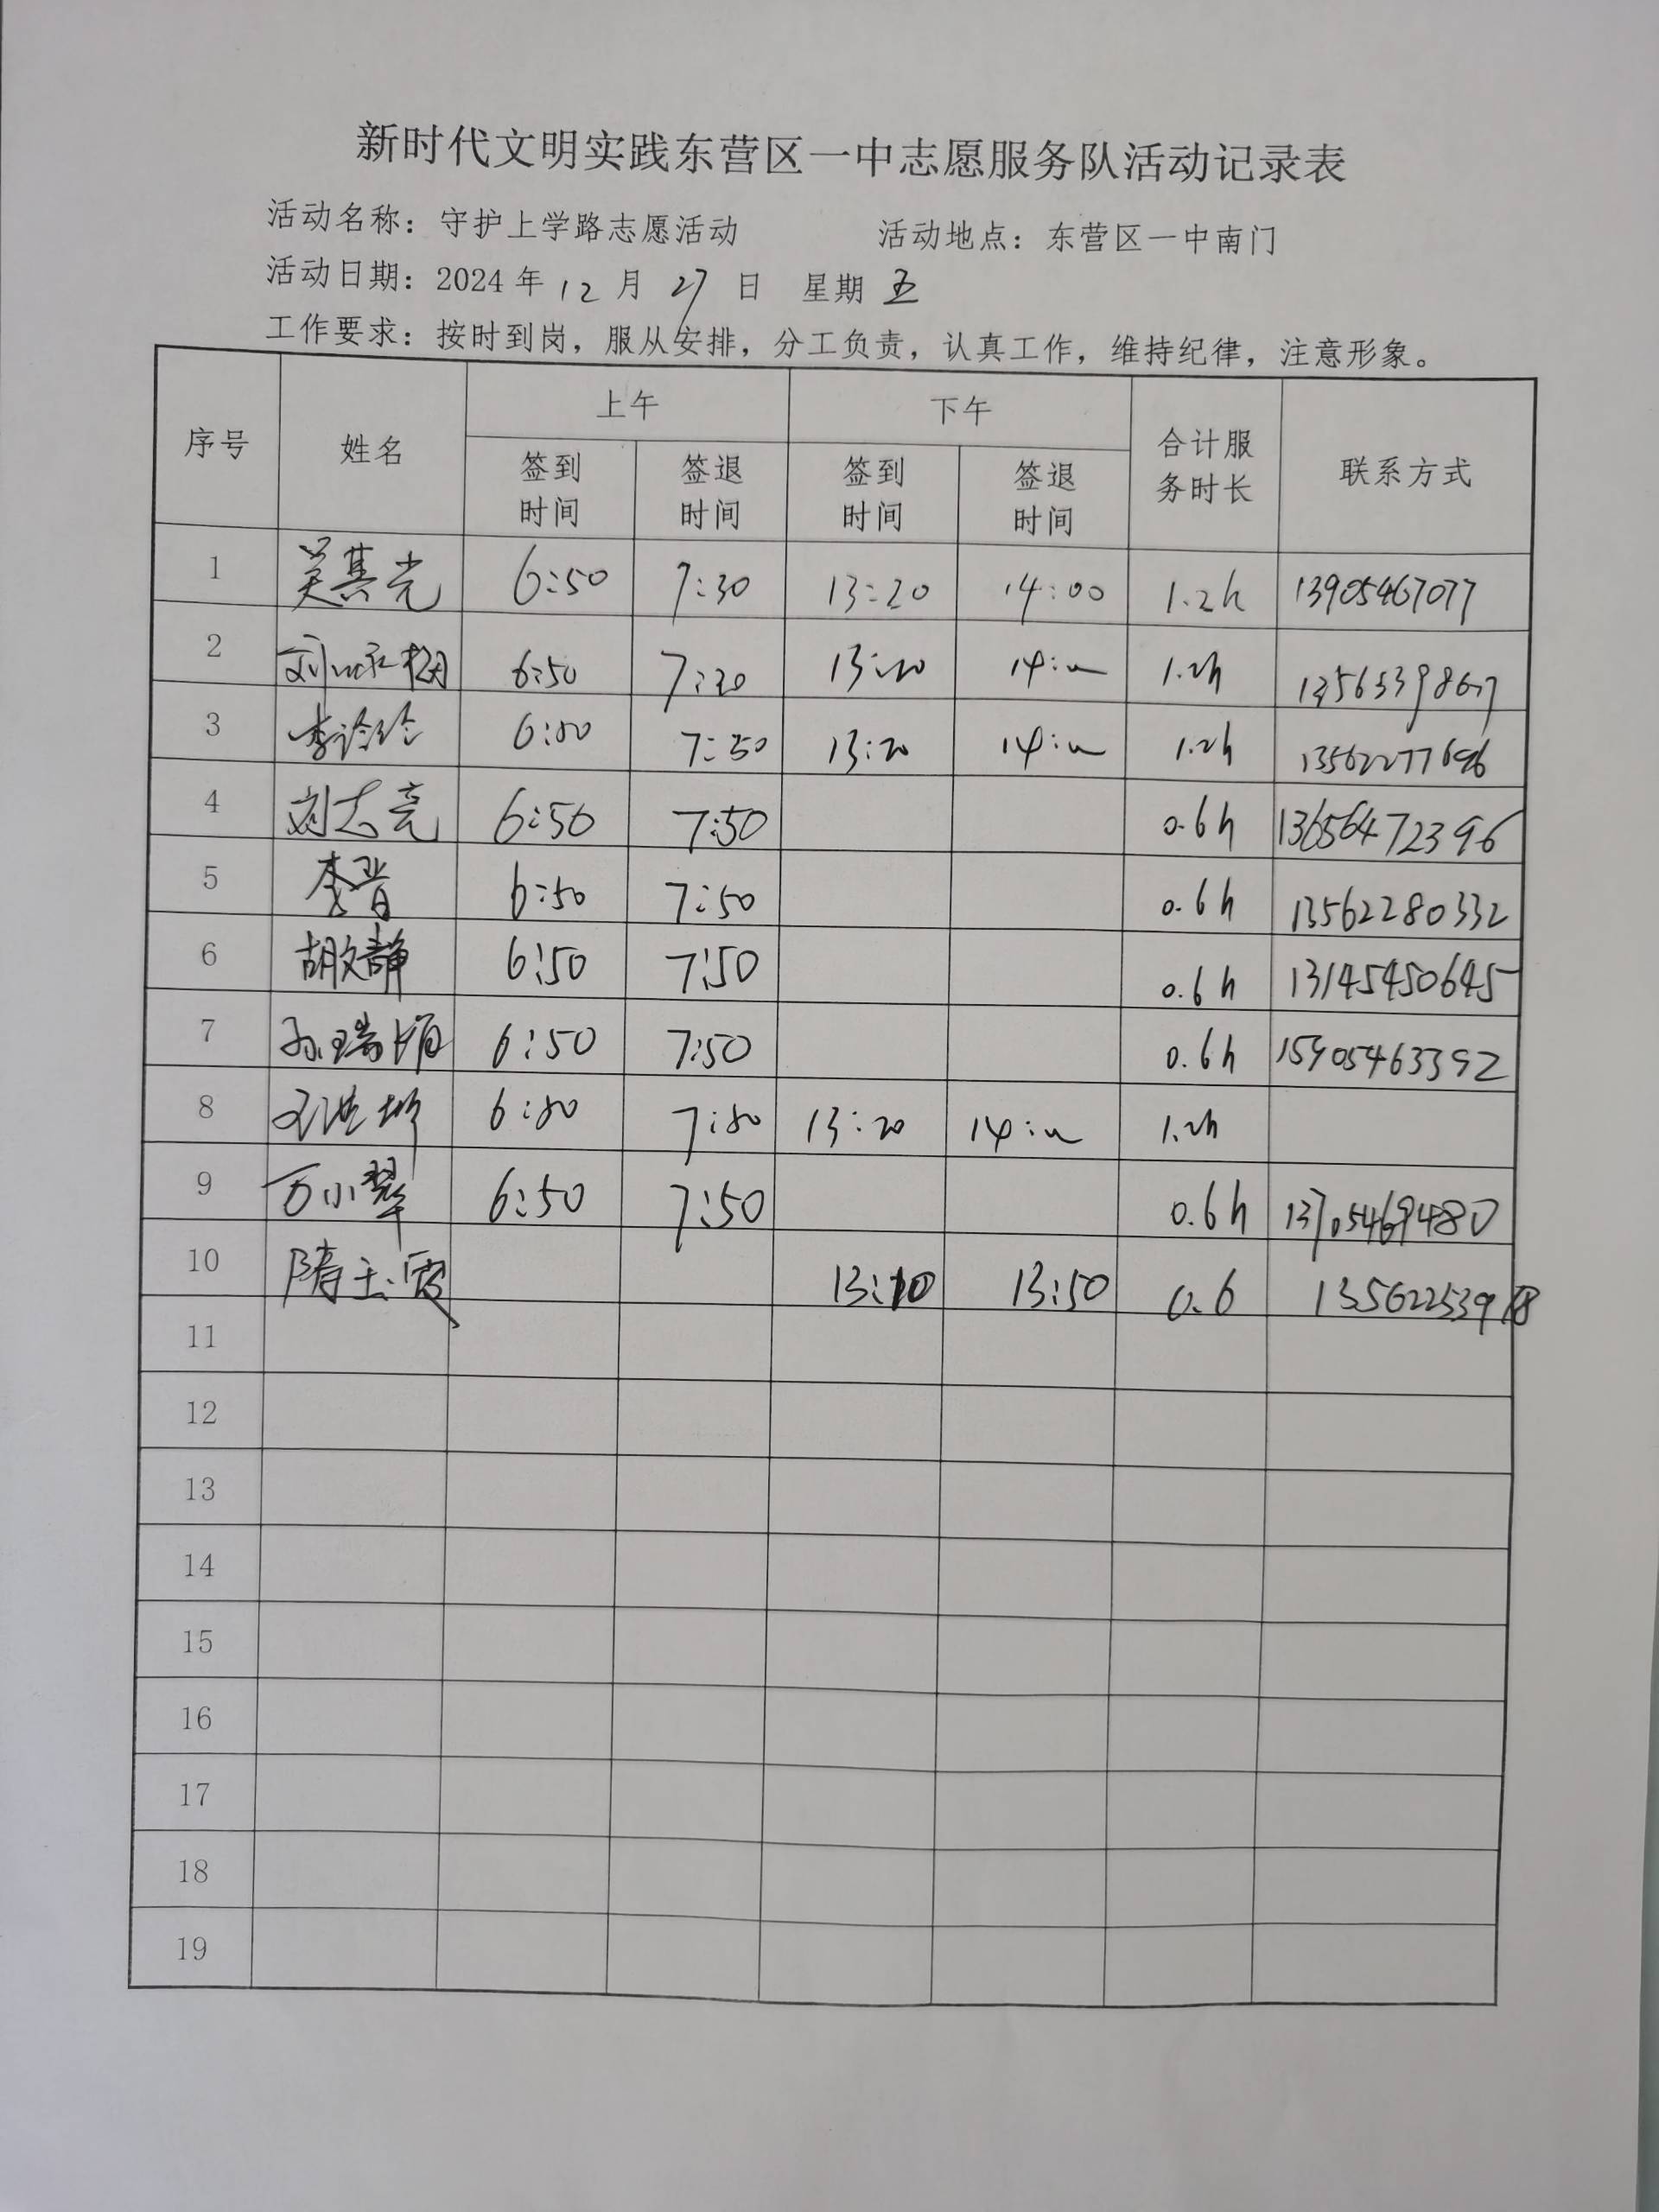 新时代文明实践东营区一中志愿服务队活动记录表
活动名称：守护上学路志愿活动 活动地点：东营区一中南门
活动日期：2024年12月27日 星期五
工作要求：按时到岗，服从安排，分工负责，认真工作，维持纪律，注意形象。
序号 姓名 上午 下午 合计服务时长 联系方式
签到时间 签退时间 签到时间 签退时间
1 吴其光 6:50 7:30 13:20 14:00 1.2h 13905467077
2 6:50 7:30 13:20 14:00 1.2h
3 6:50 7:50 13:20 14:00 1.2h 13562277696
4 刘志亮 6:50 7:50 0.6h 13656472396
5 李晋 6:50 7:50 0.6h 13562280332
6 胡文静 6:50 7:50 0.6h 13145450645
7 孙瑞娟 6:50 7:50 0.6h 15905463392
8 6:50 7:50 13:20 14:00 1.2h
9 万小翠 6:50 7:50 0.6h 13705469480
10 隋玉霞 13:10 13:50 0.6
11
12
13
14
15
16
17
18
19